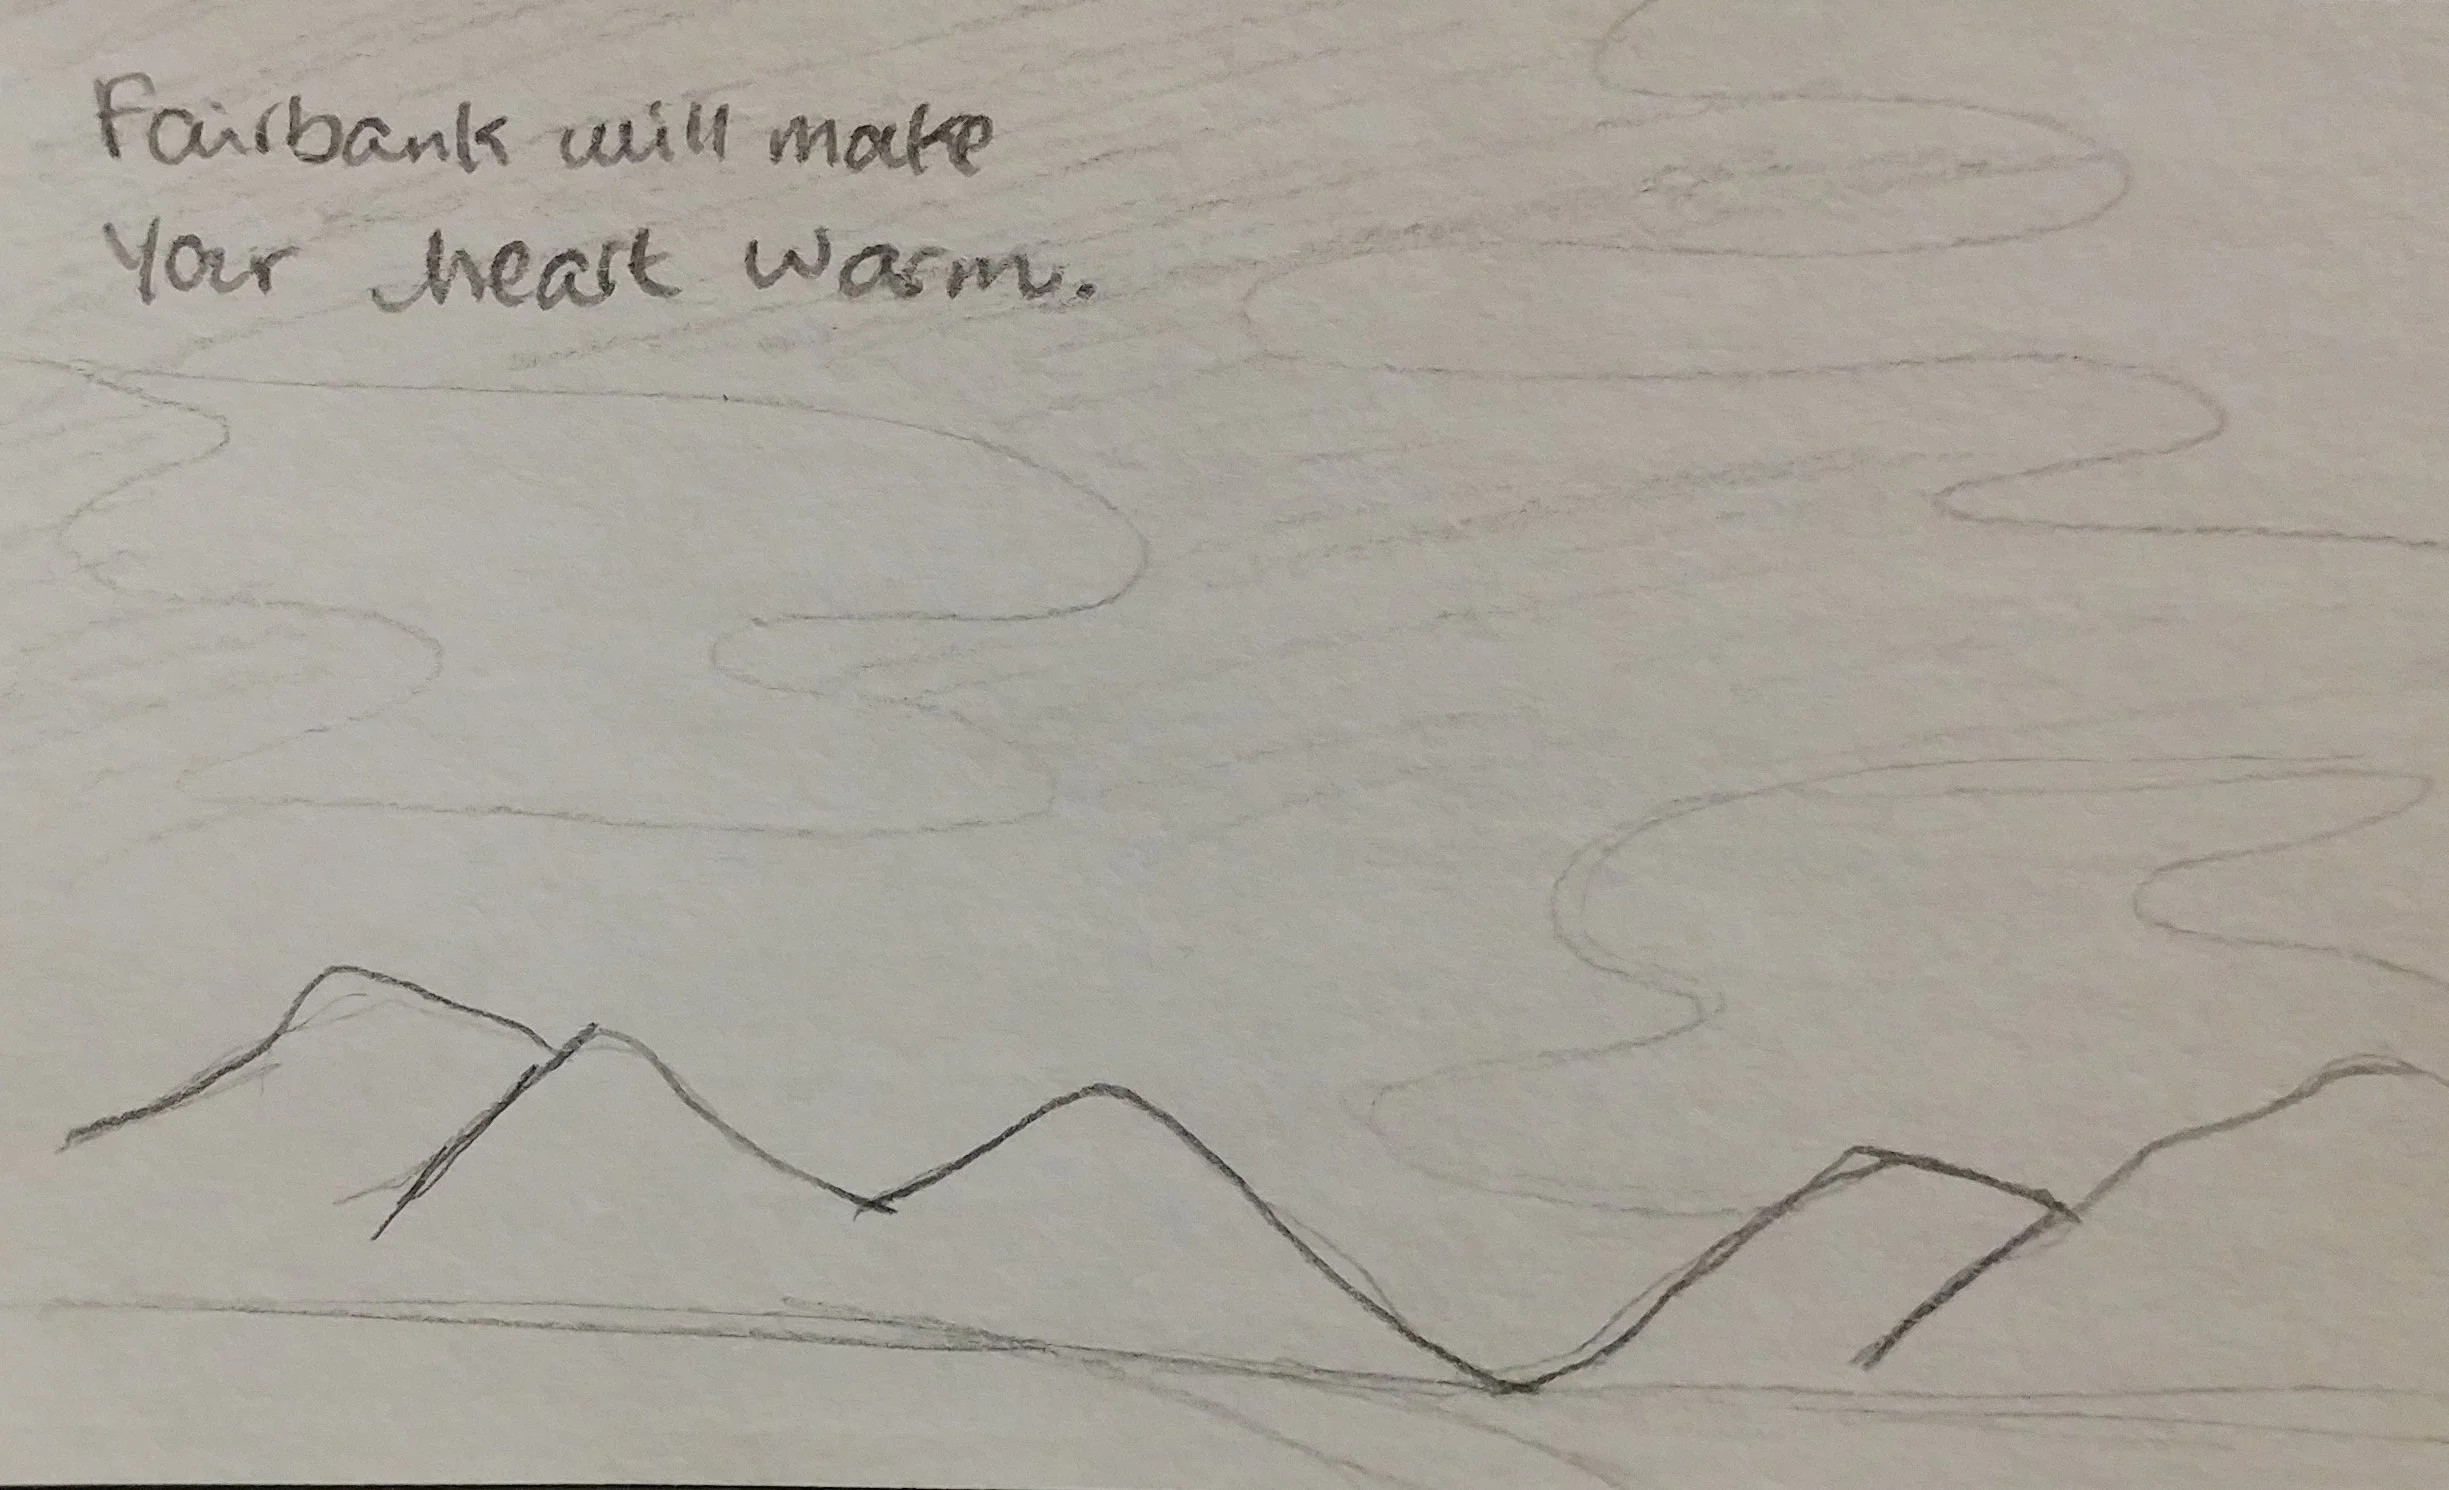 Fairbank will make
Your heart warm.